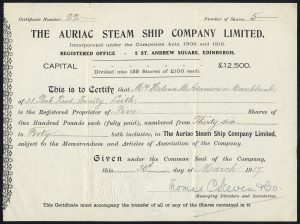 Certificate Number 22
Number of Shares 5
THE AURIAC STEAM SHIP COMPANY LIMITED.
Incorporated under the Companies Acts, 1908 and 1913.
REGISTERED OFFICE - 2 ST. ANDREW SQUARE, EDINBURGH.
CAPITAL £12,500.
Divided into 125 Shares of £100 each.
This is to Certify that Mrs Helena M. Adamson or
Park Road, Trinity, Leith
is the Registered Proprietor of Five Shares of
One Hundred Pounds each (fully paid), numbered from Thirty six
to Forty both inclusive, in The Auriac Steam Ship Company Limited,
subject to the Memorandum and Articles of Association of the Company.
Given under the Common Seal of the Company, this
30th day of March 1917
Thomas C. Steven & Co.
Managing Directors and Secretaries.
This Certificate must accompany the transfer of all or any of the Shares contained in it.